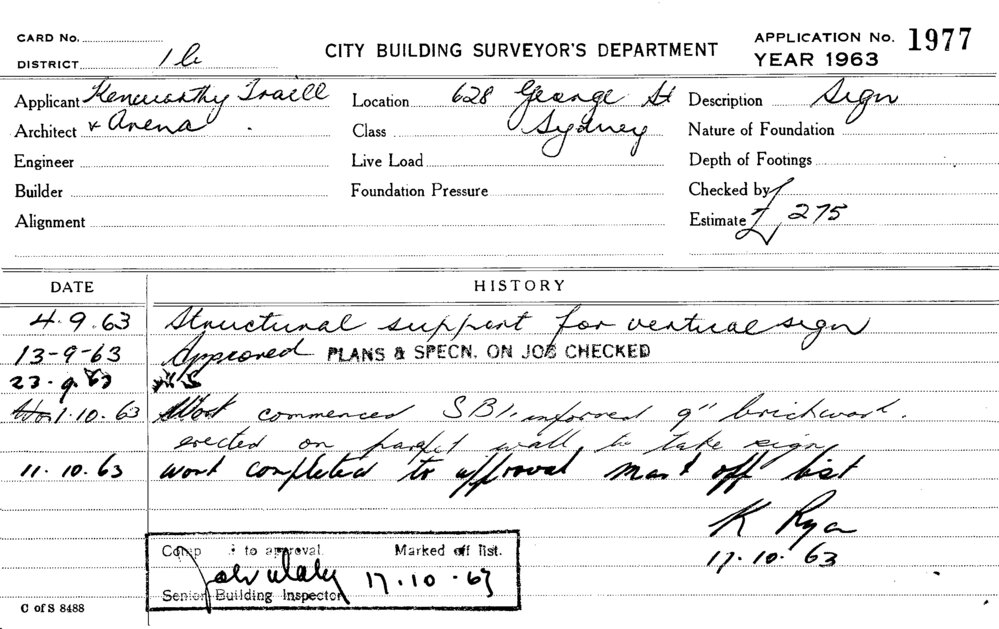 CARD No.
DISTRICT
CITY BUILDING SURVEYOR'S DEPARTMENT
APPLICATION No. 1977
YEAR 1963
Applicant Kenworthy Traill
Architect & Arena
Engineer
Builder
Alignment
Location 628 George St
Class Sydney
Live Load
Foundation Pressure
Description Sign
Nature of Foundation
Depth of Footings
Checked by
Estimate £ 275
DATE HISTORY
4.9.63 Structural support for vertical sign
13-9-63 Approved PLANS & SPECN. ON JOB CHECKED
23.9.63
1.10.63 Work commenced informed 9" brickwork.
erected on parapet wall to take sign
11.10.63 Work completed to approval mark off list
K Ryan
17.10.63
Comp to approval. Marked off list.
17.10.63
Senior Building Inspector
C of S 8488